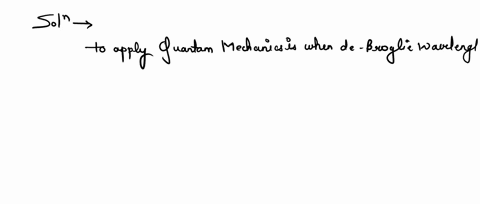 Solⁿ →
to apply Quantam Mechanics is when de-Broglie wavelengt